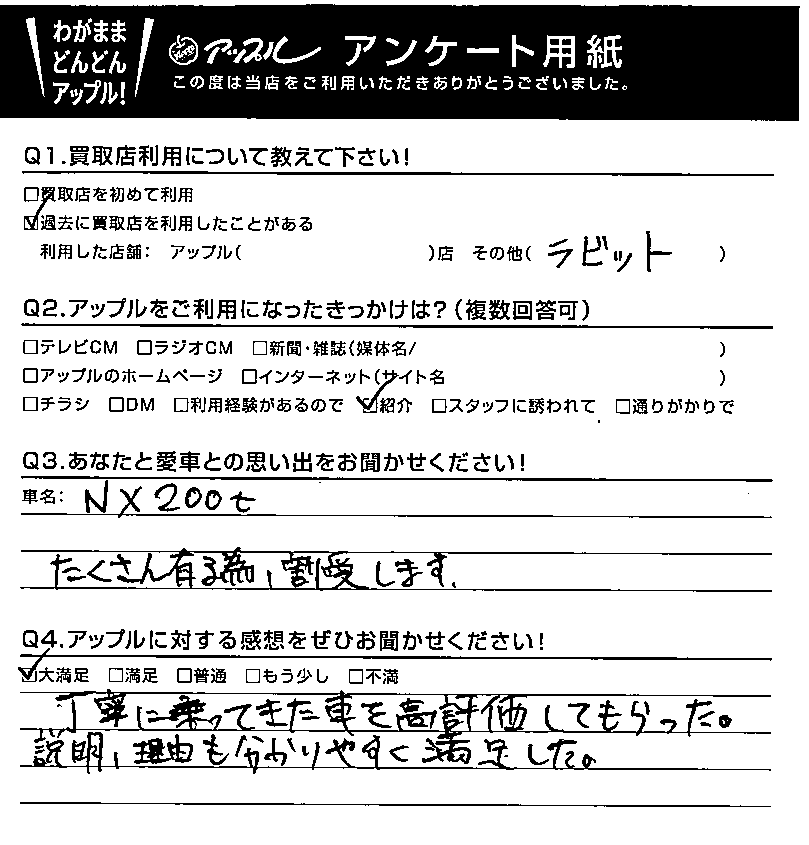 わがまま
どんどん
アップル!
アップル アンケート用紙
この度は当店をご利用いただきありがとうございました。
Q1.買取店利用について教えて下さい!
□買取店を初めて利用
☑過去に買取店を利用したことがある
利用した店舗: アップル( )店 その他( ラビット )
Q2.アップルをご利用になったきっかけは?(複数回答可)
□テレビCM □ラジオCM □新聞・雑誌(媒体名/ )
□アップルのホームページ □インターネット(サイト名 )
□チラシ □DM □利用経験があるので ☑紹介 □スタッフに誘われて □通りがかりで
Q3.あなたと愛車との思い出をお聞かせください!
車名: NX200t
たくさん有る為、割愛します.
Q4.アップルに対する感想をぜひお聞かせください!
☑大満足 □満足 □普通 □もう少し □不満
丁寧に乗ってきた車を高評価してもらった。
説明、理由も分かりやすく満足した。